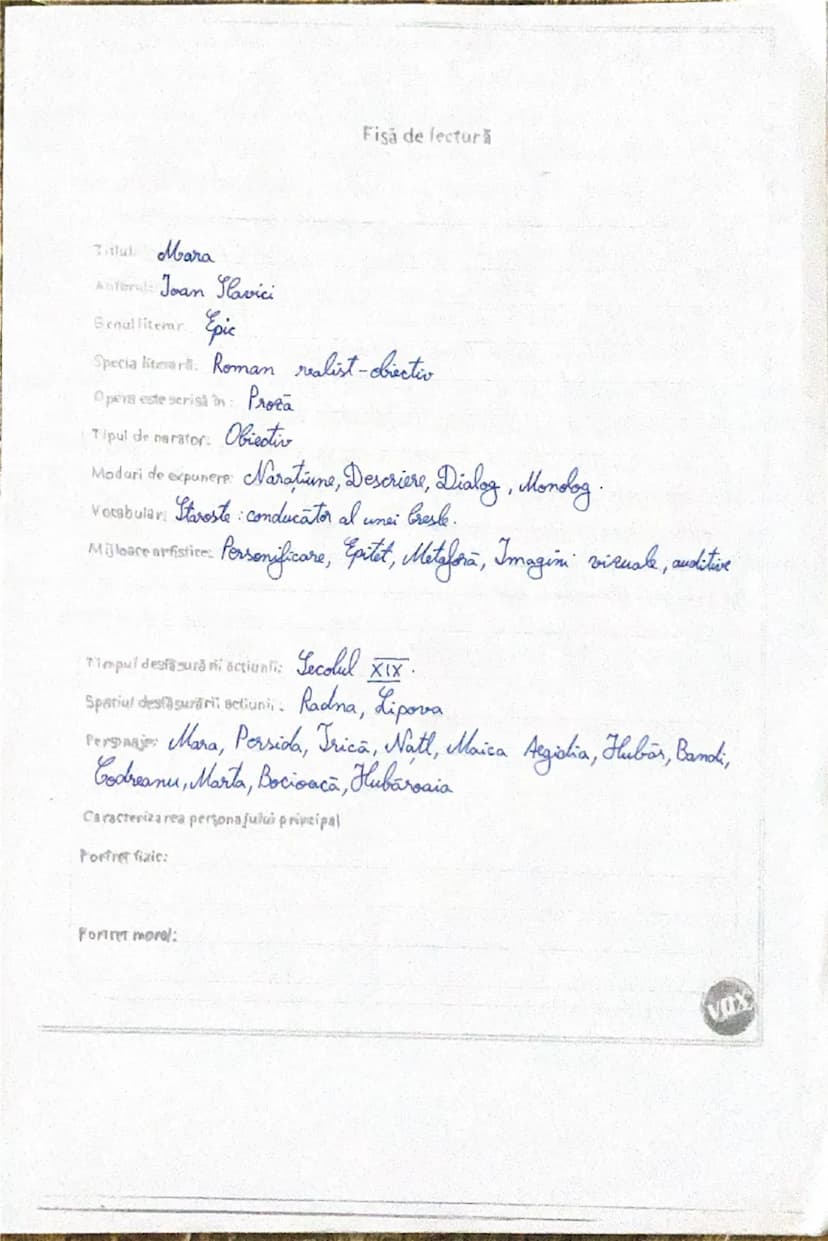 Fișă de lectură
Titlul: Mara
Autorul: Ioan Slavici
Genul literar: Epic
Specia literară: Roman realist-obiectiv
Opera este scrisă în: Proză
Tipul de narator: Obiectiv
Moduri de expunere: Narațiune, Descriere, Dialog, Monolog.
Vocabular: Staroste: conducător al unei bresle.
Mijloace artistice: Personificare, Epitet, Metaforă, Imagini vizuale, auditive
Timpul desfășurării acțiunii: Secolul XIX.
Spațiul desfășurării acțiunii: Radna, Lipova
Personaje: Mara, Persida, Trică, Națl, Maica Aegidia, Hubăr, Bandi,
Codreanu, Marta, Bocioacă, Hubăroaia
Caracterizarea personajului principal
Portret fizic:
Portret moral:
VOX